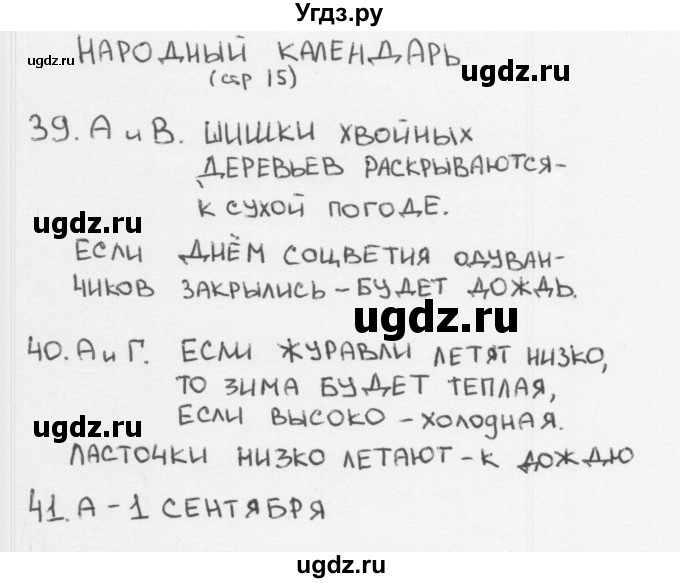 Угдз.ру
НАРОДНЫЙ КАЛЕНДАРЬ
ugdz.ru
ugdz.ru
(стр 15)
39. А и В. ШИШКИ ХВОЙНЫХ
ДЕРЕВЬЕВ РАСКРЫВАЮТСЯ-
К СУХОЙ ПОГОДЕ.
ugdz.ru
ЕСЛИ ДНЁМ СОЦВЕТИЯ ОДУВАН-
ЧИКОВ ЗАКРЫЛИСЬ - БУДЕТ ДОЖДЬ.
ugdz.ru
40. А и Г. ЕСЛИ ЖУРАВЛИ ЛЕТЯТ НИЗКО,
ТО ЗИМА БУДЕТ ТЕПЛАЯ,
ЕСЛИ ВЫСОКО - ХОЛОДНАЯ.
ugdz.ru
ЛАСТОЧКИ НИЗКО ЛЕТАЮТ - К ДОЖДЮ
41. А - 1 СЕНТЯБРЯ
ugdz.ru